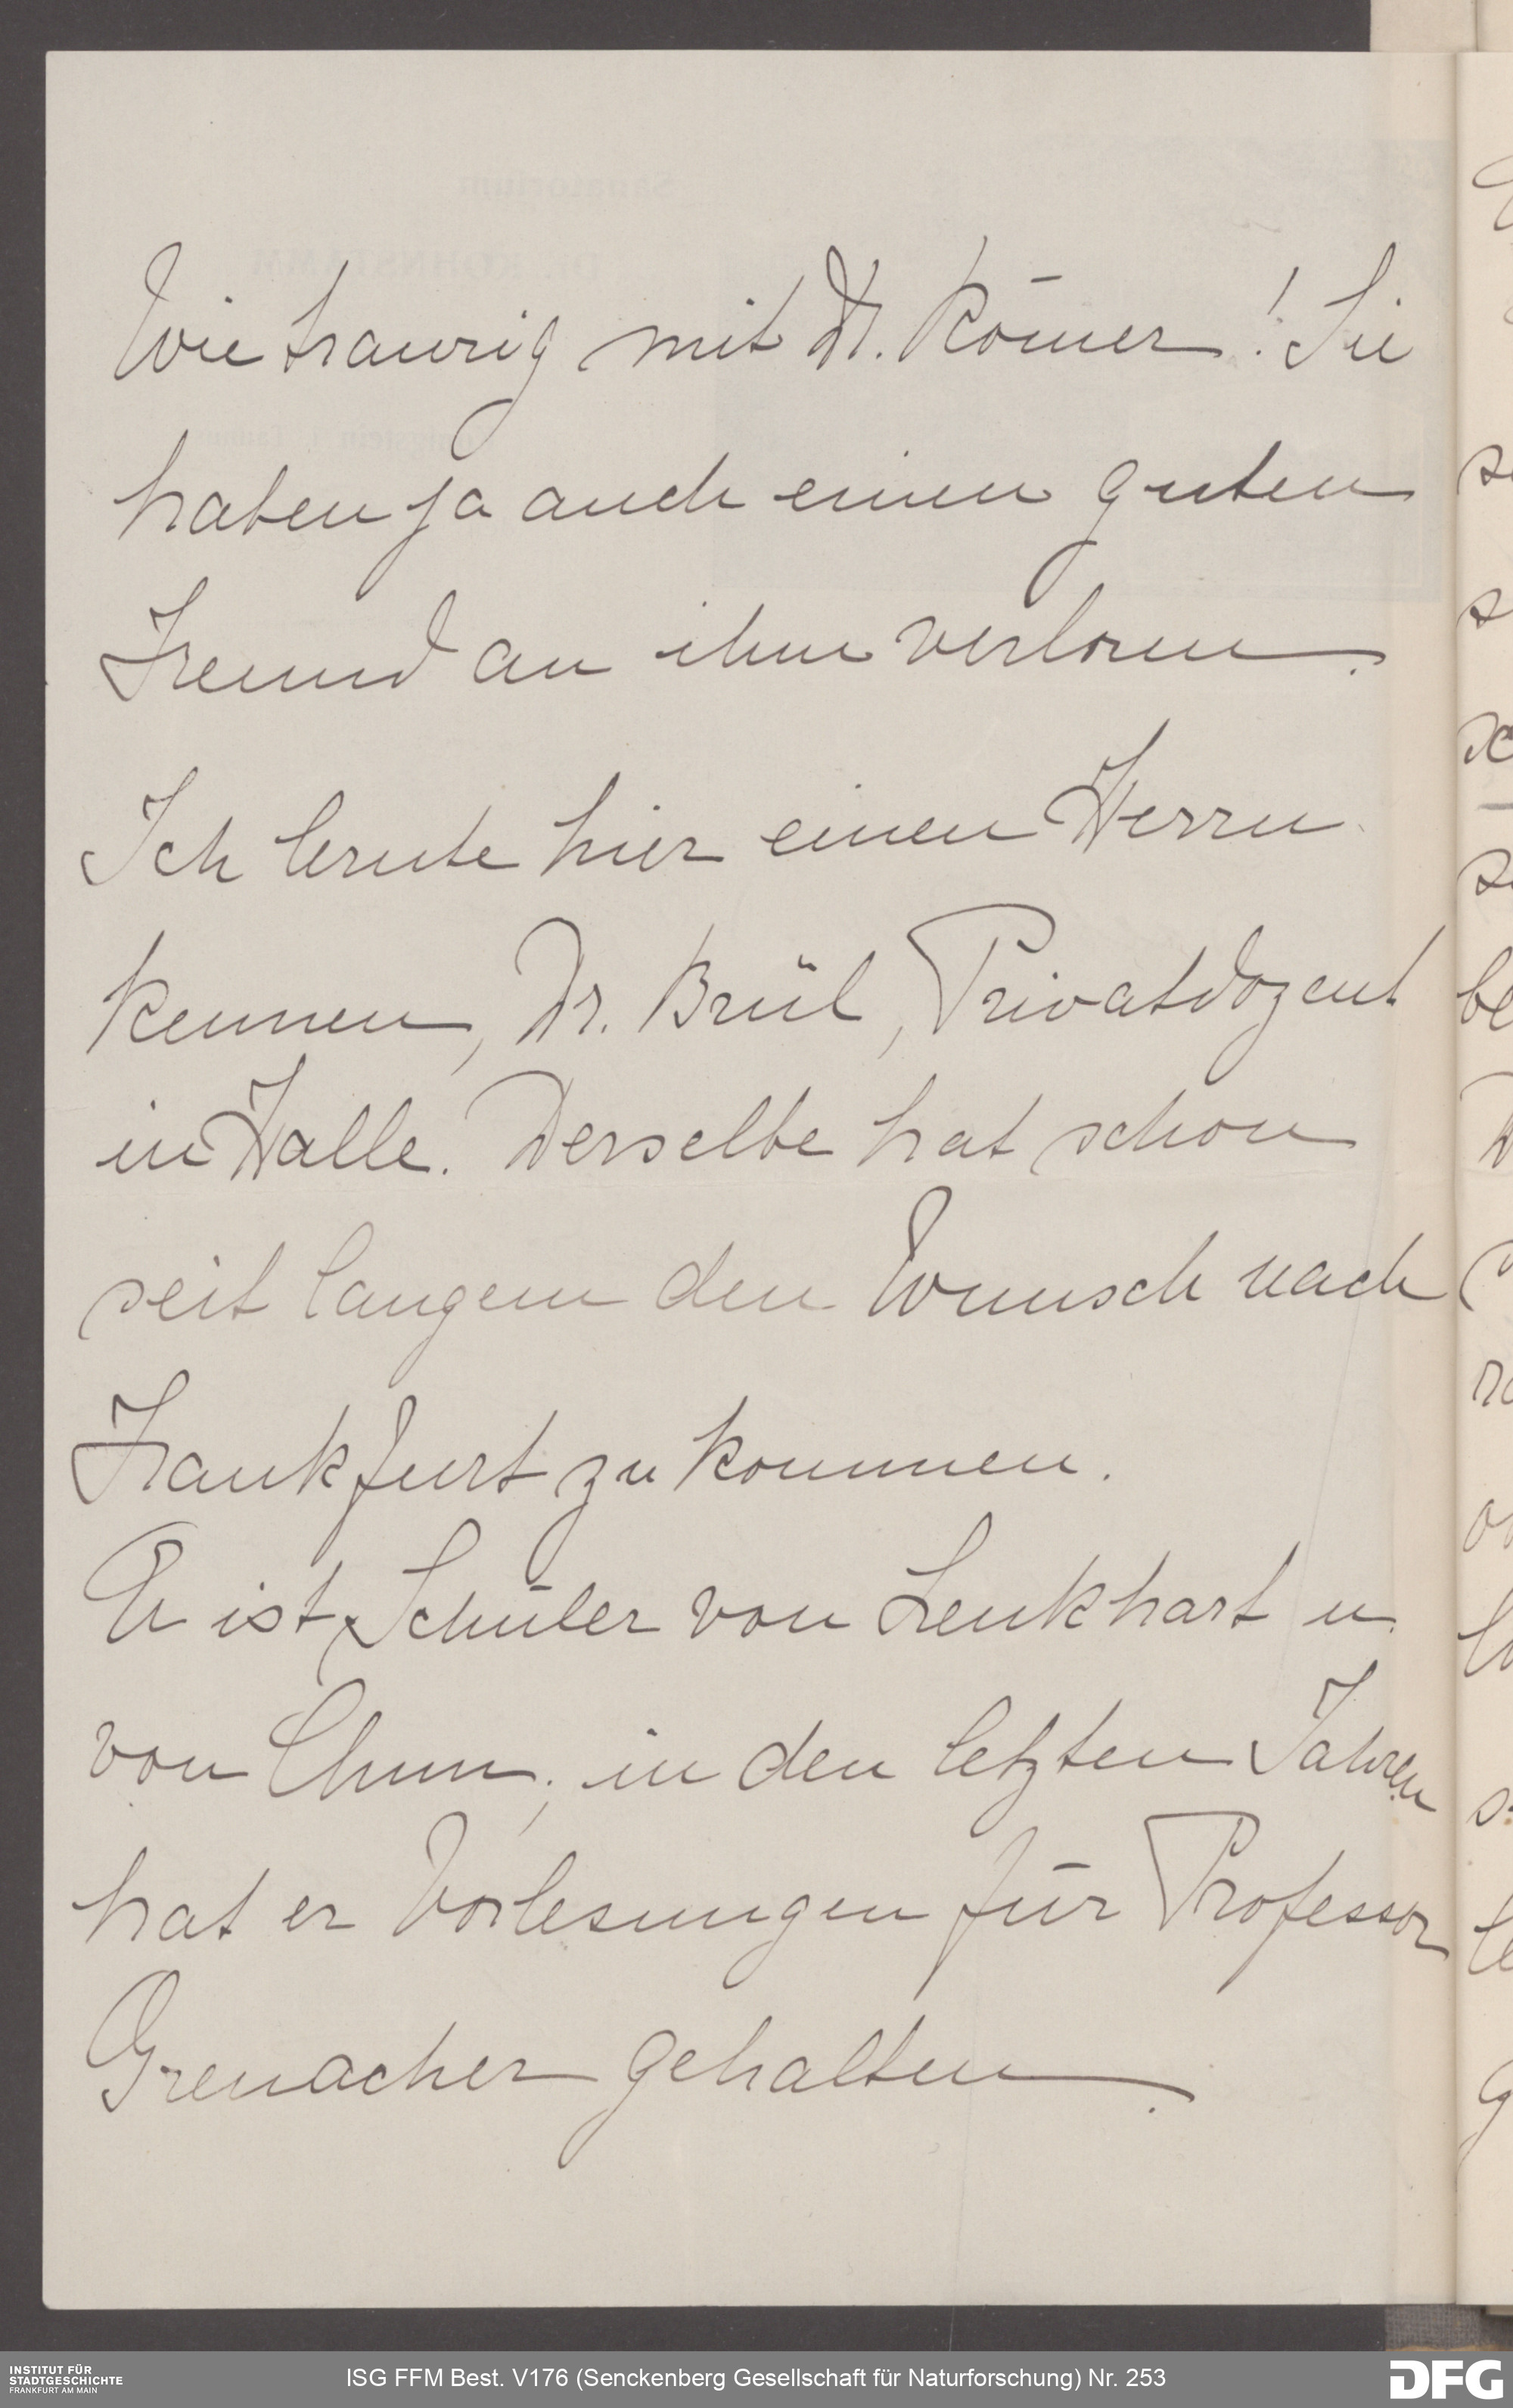 Wie traurig mit Dr. Römer! Sie
haben ja auch einen guten
Freund an ihm verloren.
Ich lernte hier einen Herrn
kennen, Dr. Brüel, Privatdozent
in Halle. Derselbe hat schon
seit langem den Wunsch nach
Frankfurt zu kommen.
Er ist Schüler von Leukhart u.
von Chun; in den letzten Jahren
hat er Vorlesungen für Professor
Grenacher gehalten.
INSTITUT FÜR
STADTGESCHICHTE
FRANKFURT AM MAIN
ISG FFM Best. V176 (Senckenberg Gesellschaft für Naturforschung) Nr. 253
DFG